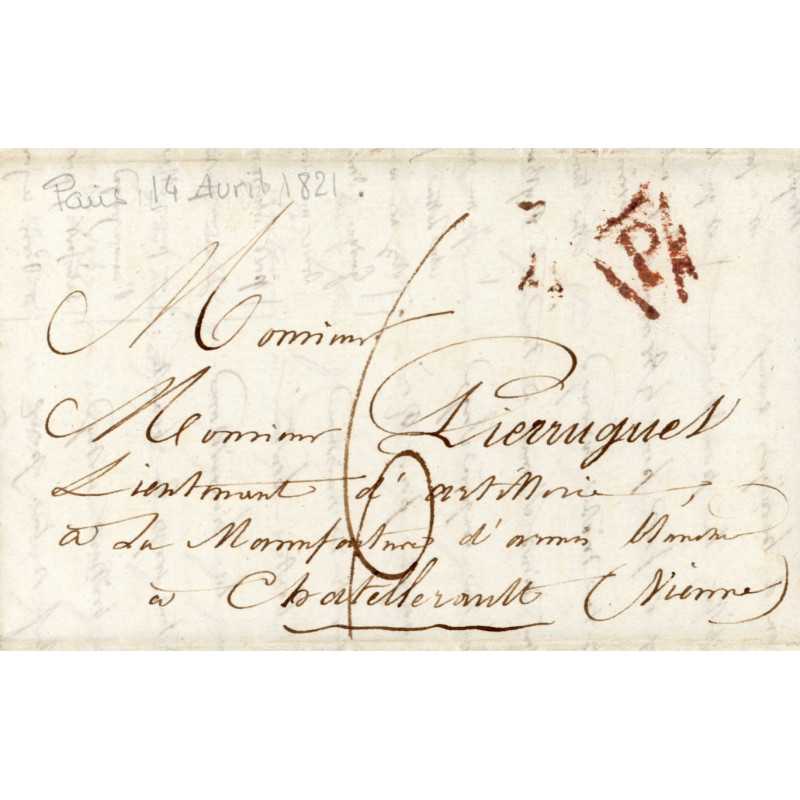 Paris 14 Avril 1821.
P
Monsieur
Monsieur Pierruguet
Lieutenant d'artillerie,
à La Manufacture d'armes blanche
à Chatellerault (Vienne)
6